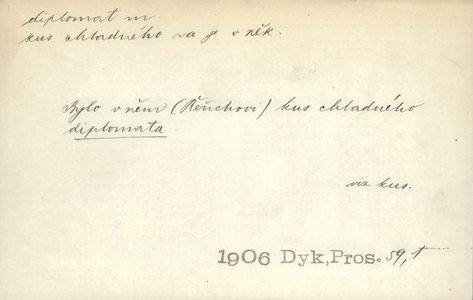 diplomat m
kus chladného -a je v něk.
Bylo v něm (Řeřichovi) kus chladného
diplomata.
viz kus.
1906 Dyk, Pros. 59, 1